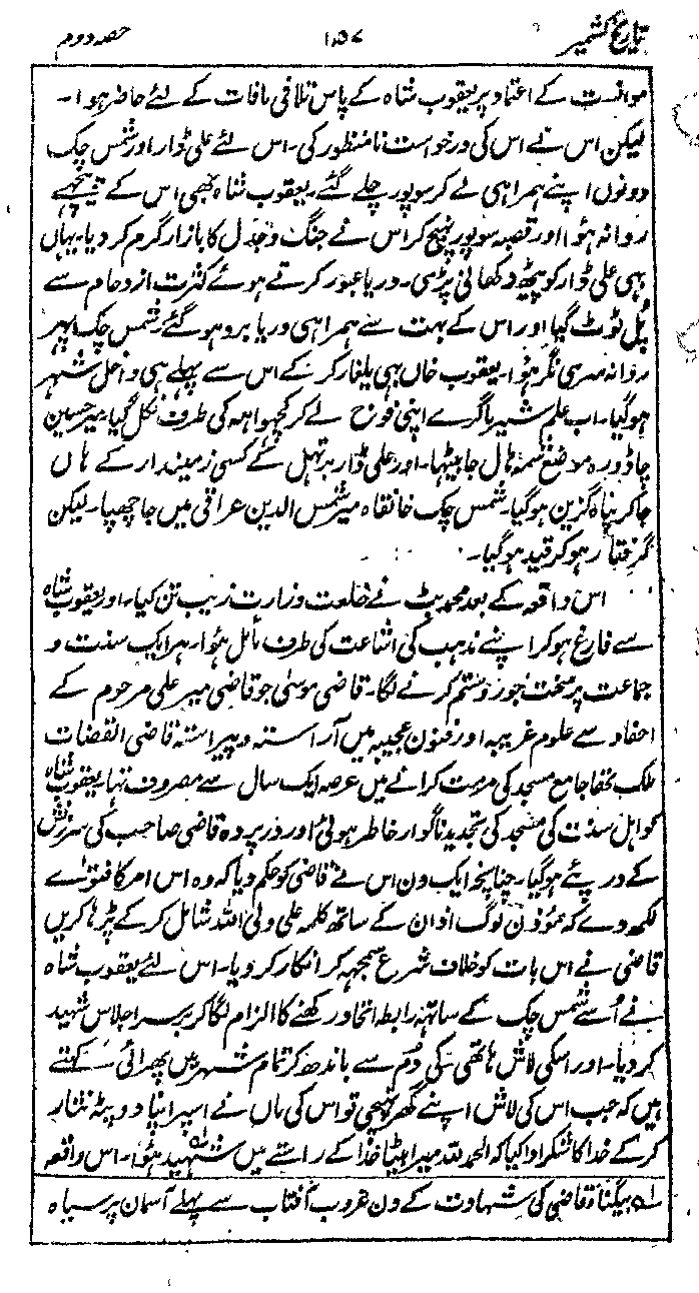 تاریخ کشمیر ۱۵۷ حصہ دوم
موانست کے اعتماد پر یعقوب شاہ کے پاس تلافی مافات کے لئے حاضر ہوا۔
لیکن اس نے اس کی درخواست نامنظور کی۔ اس لئے علی ڈار اور شمس چک
دونوں اپنے ہمراہی لے کر سوپور چلے گئے۔ یعقوب شاہ بھی اس کے پیچھے
روانہ ہؤا اور قصبہ سوپور پہنچ کر اس نے جنگ و جدل کا بازار گرم کر دیا۔ یہاں
بہی علی ڈار کو پیٹھ دکھانی پڑی۔ دریا عبور کرتے ہوئے کثرت ازدحام سے
پُل ٹوٹ گیا اور اس کے بہت سے ہمراہی دریا برد ہو گئے شمس چک پہر
روانہ سری نگر ہؤا۔ یعقوب خاں بہی یلغار کر کے اس سے پہلے ہی داخل شہر
ہو گیا۔ اب علم شیر ماگرے اپنی فوج لے کر کچہوامہ کی طرف نکل گیا۔ میر حسین
چاڈورہ موضع ہال جا بیٹہا۔ اور علی ڈار برتہل کے کسی زمیندار کے ہاں
جا کر پناہ گزین ہو گیا۔ شمس چک خانقاہ میر شمس الدین عراقی میں جا چھپا۔ لیکن
گرفتار ہو کر قید ہو گیا۔
اس واقعہ کے بعد محمد بٹ نے خلعت وزارت زیب تن کیا۔ اور یعقوب شاہ
سے فارغ ہو کر اپنے مذہب کی اشاعت کی طرف مائل ہؤا۔ ہر ایک سنت و
جماعت پر سخت جور و ستم کرنے لگا۔ قاضی موسیٰ جو قاضی میر علی مرحوم کے
احفاد سے علوم غریبہ اور فنون عجیبہ میں آراستہ و پیراستہ قاضی القضات
ملک تھا جامع مسجد کی مرمت کرانے میں عرصہ ایک سال سے مصروف تہا۔ یعقوب شاہ
کو اہل سنت کی مسجد کی تجدید ناگوار خاطر ہوئی اور در پردہ قاضی صاحب کی سرزنش
کے درپئے ہو گیا۔ چنانچہ ایک دن اس نے قاضی کو حکم دیا کہ وہ اس امر کا فتوےٰ
لکھ دے کہ مؤذن لوگ اذان کے ساتھ کلمہ علی ولی اللہ شامل کر کے پڑہا کریں
قاضی نے اس بات کو خلاف شرع سمجہہ کر انکار کر دیا۔ اس لئے یعقوب شاہ
نے اُسے شمس چک کے ساتہہ رابطہ اتحاد رکھنے کا الزام لگا کر بر سر اجلاس شہید
کر دیا۔ اور اسکی لاش ہاتھی کی دُم سے باندھ کر تمام شہر میں پھرائی۔ کہتے
ہیں کہ جب اس کی لاش اپنے گھر پہنچی تو اس کی ماں نے اسپر اپنا دوپٹہ نثار
کر کے خدا کا شکر ادا کیا کہ الحمد للہ میرا بیٹا خدا کے راستے میں شہید ہؤا۔ اس واقعہ
لہ بیگناہ قاضی کی شہادت کے دن غروب آفتاب سے پہلے آسمان پر سیاہ